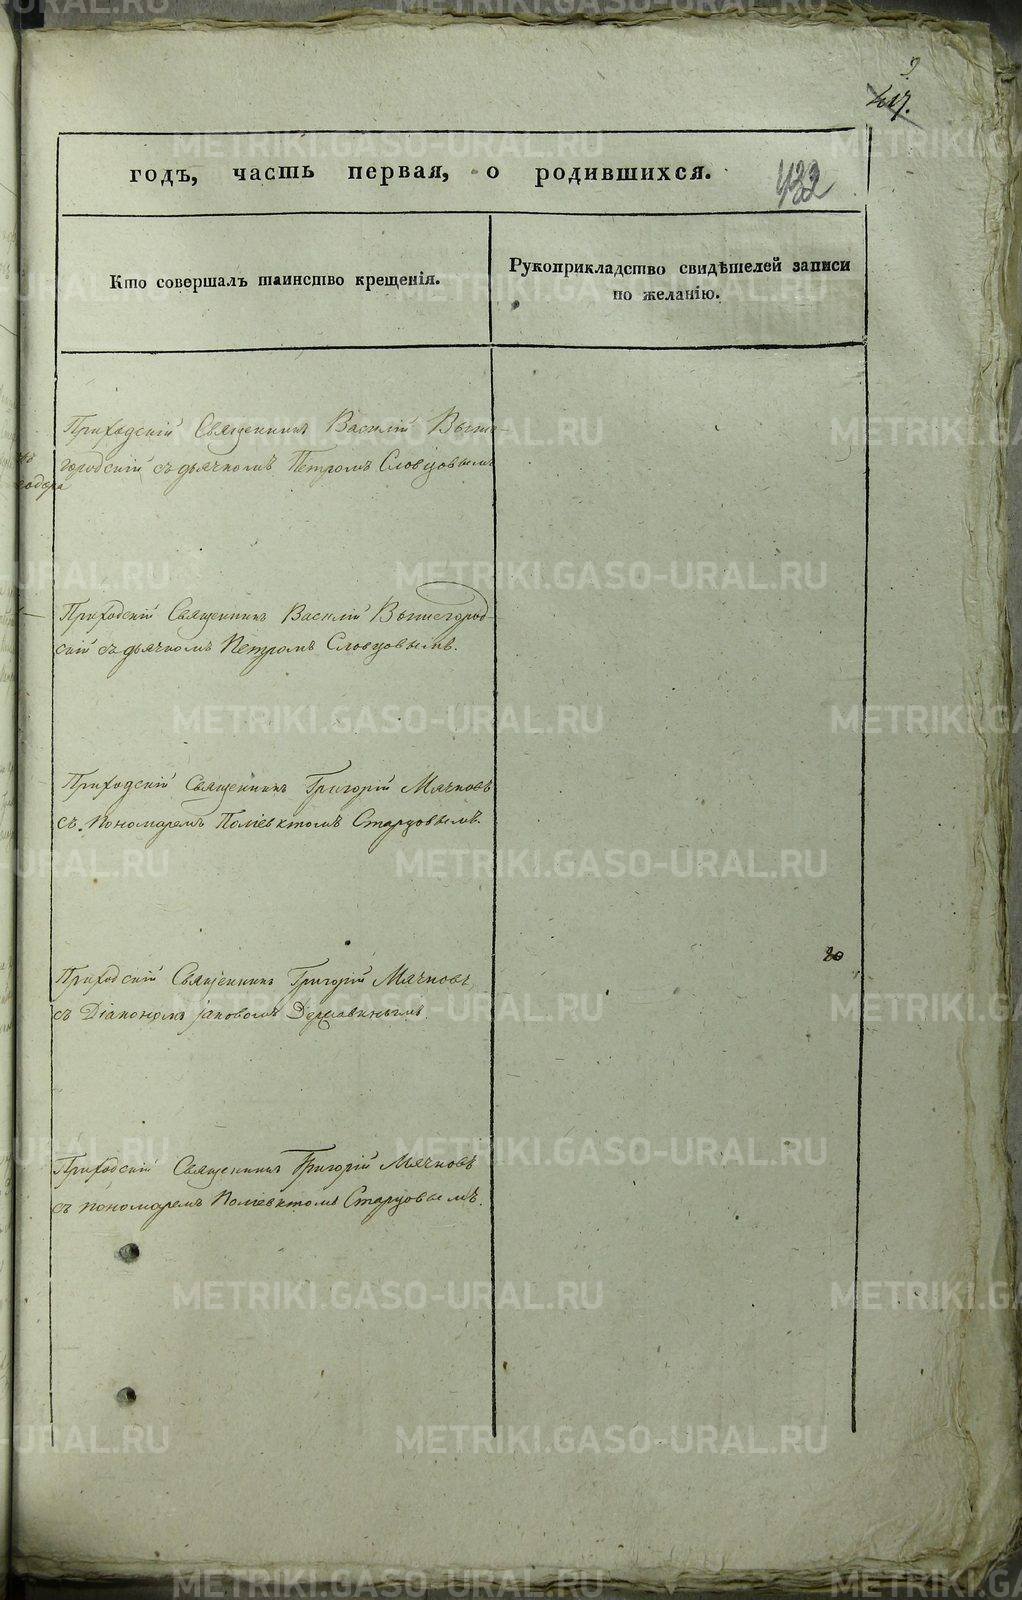 9.
417.
годъ, часть первая, о родившихся.
432
Кто совершалъ таинство крещенія.
Рукоприкладство свидѣтелей записи
по желанію.
Приходскій Священникъ Василій Выше-
городскій съ дьячкомъ Петромъ Словцовымъ
Приходскій Священникъ Василій Вышегород-
скій съ дьячкомъ Петромъ Словцовымъ.
Приходскій Священникъ Григорій Мячковъ
съ Пономаремъ Поліевктомъ Старцовымъ.
Приходскій Священникъ Григорій Мячковъ,
съ Діакономъ Іаковомъ Державинымъ.
20
Приходскій Священникъ Григорій Мячковъ
съ пономаремъ Поліевктомъ Старцовымъ.
METRIKI.GASO-URAL.RU